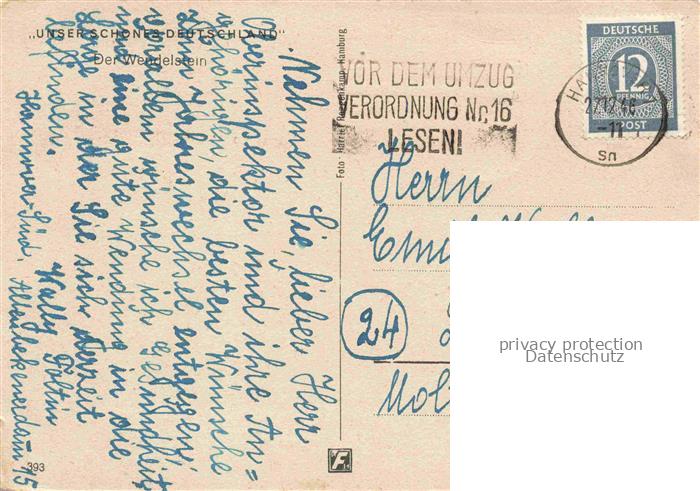 „UNSER SCHÖNES DEUTSCHLAND"
Der Wendelstein
Nehmen Sie, lieber Herr
Oberinspektor und ihre An=
gehörigen, die besten Wünsche
zum Jahreswechsel entgegen!
Vor allem wünsche ich Gesundheit
und eine gute Wendung in die
Lage in der Sie sich derzeit
befinden.
Wally
Hannover-Süd, Altenbekenerdamm 15
393
Foto: Harriet Hamburg
F
VOR DEM UMZUG
VERORDNUNG Nr. 16
LESEN!
DEUTSCHE
12
PFENNIG
POST
HA
-11
Sn
Herrn
24
Mol
privacy protection
Datenschutz